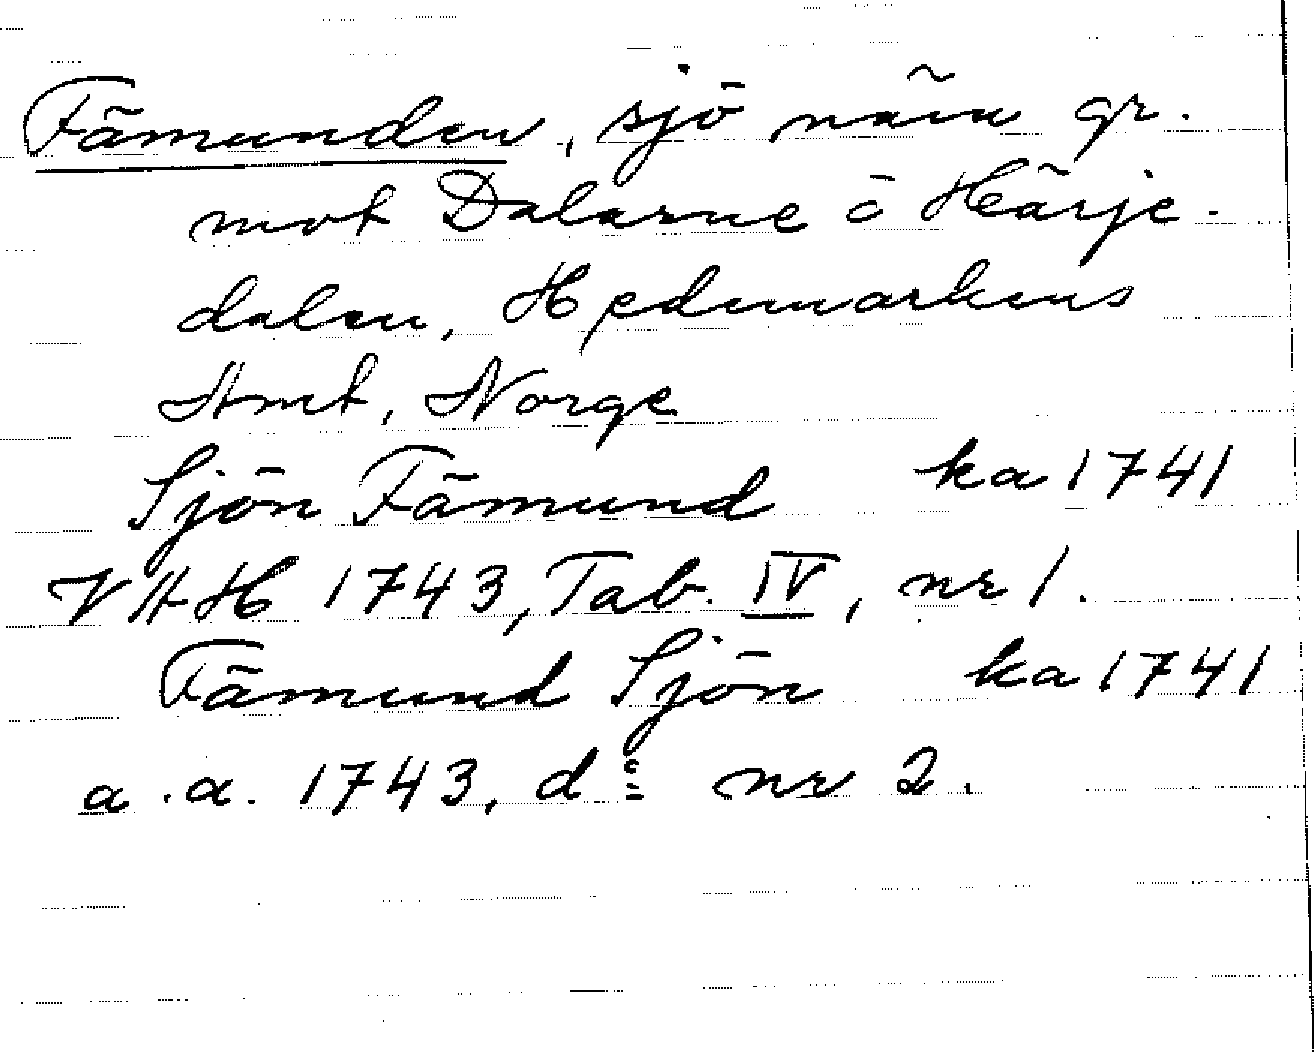 Fämunden, sjö nära gr.
mot Dalarne ō Härje-
dalen, Hedemarkens
Amt, Norge
Sjön Fämund ka 1741
VAH 1743, Tab. IV, nr 1.
Fämund Sjön ka 1741
a.a. 1743, d:o nr 2.